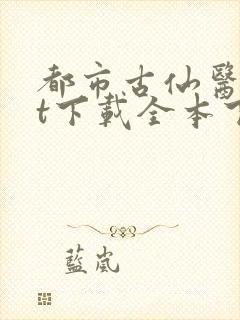 都市古仙醫
t下載全本
藍嵐